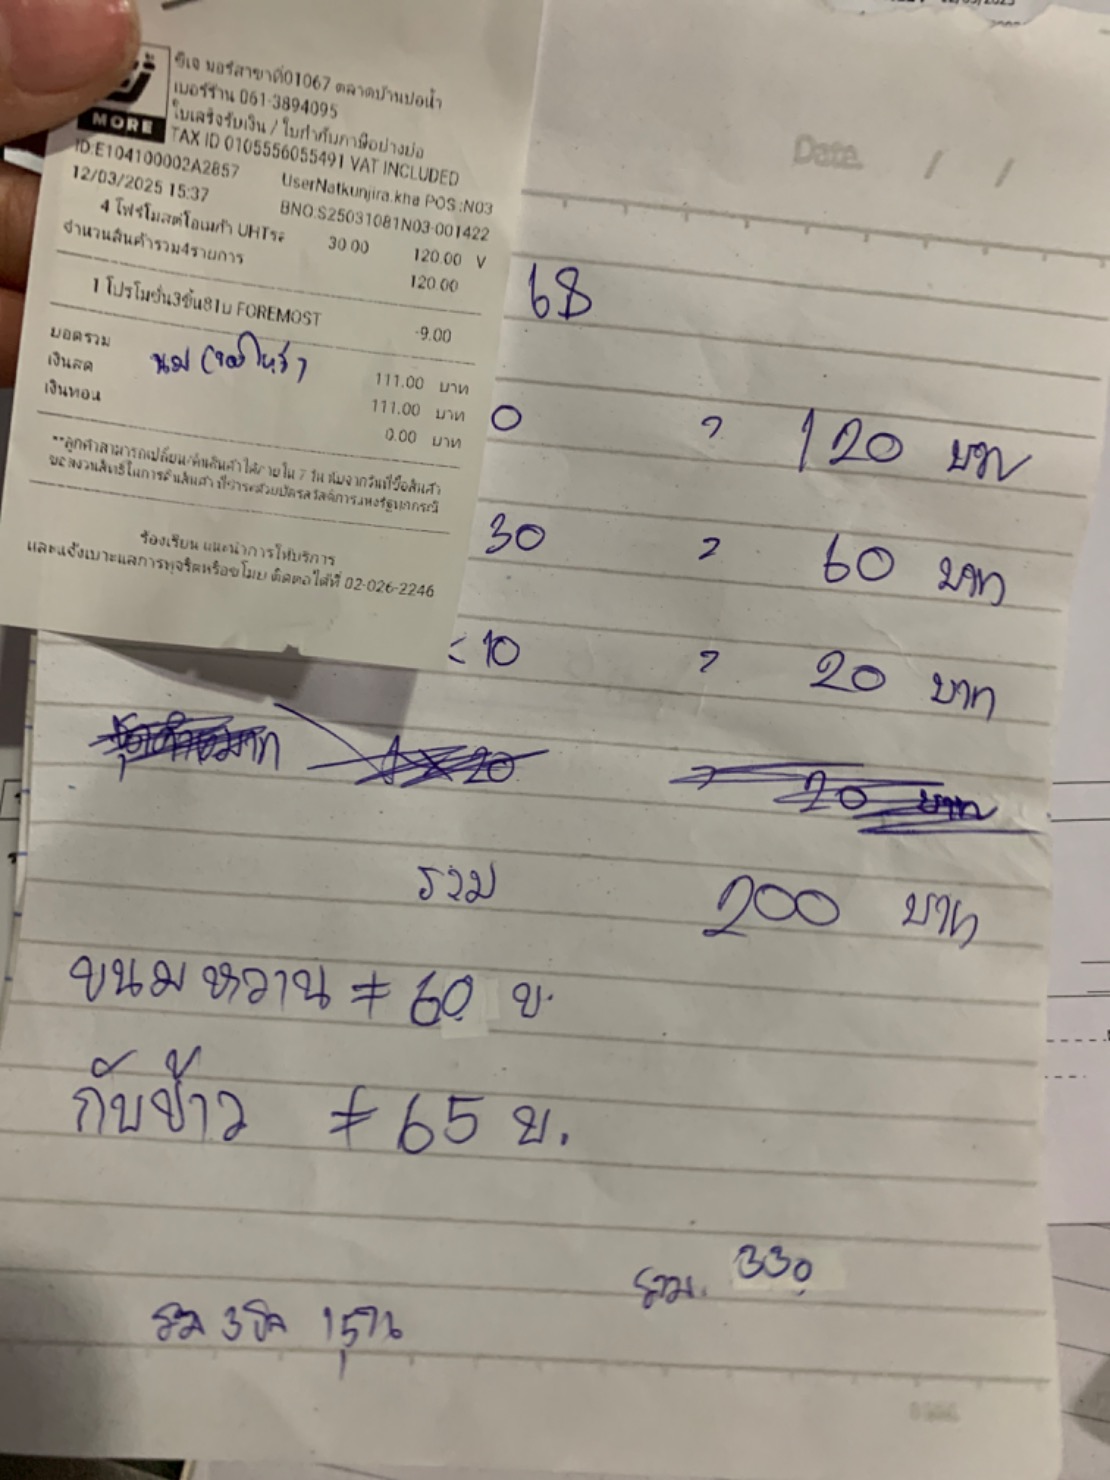 MORE
ซีเจ มอร์สาขาที่01067 ตลาดบ้านบ่อน้ำ
เบอร์ร้าน 061-3894095
ใบเสร็จรับเงิน / ใบกำกับภาษีอย่างย่อ
TAX ID 0105556055491 VAT INCLUDED
ID:E104100002A2857 UserNatkunjira.kha POS :N03
12/03/2025 15:37 BNO:S25031081N03-001422
4 โฟร์โมสต์โอเมก้า UHTรส 30.00 120.00 V
จำนวนสินค้ารวม4รายการ 120.00
1 โปรโมชั่น3ชิ้น81บ FOREMOST -9.00
ยอดรวม 111.00 บาท
เงินสด 111.00 บาท
เงินทอน 0.00 บาท
นม
**ลูกค้าสามารถเปลี่ยน/คืนสินค้าได้ภายใน 7 วัน นับจากวันที่ซื้อสินค้า
ขอสงวนสิทธิ์ในการคืนสินค้า ที่ชำระด้วยบัตรสวัสดิการแห่งรัฐทุกกรณี
ร้องเรียน แนะนำการให้บริการ
และแจ้งเบาะแสการทุจริตหรือขโมย ติดต่อได้ที่ 02-026-2246
Date / /
68
0 = 120 บาท
30 = 60 บาท
10 = 20 บาท
20 20 บาท
รวม 200 บาท
ขนมหวาน = 60 บ.
กับข้าว = 65 บ.
รวม. 330